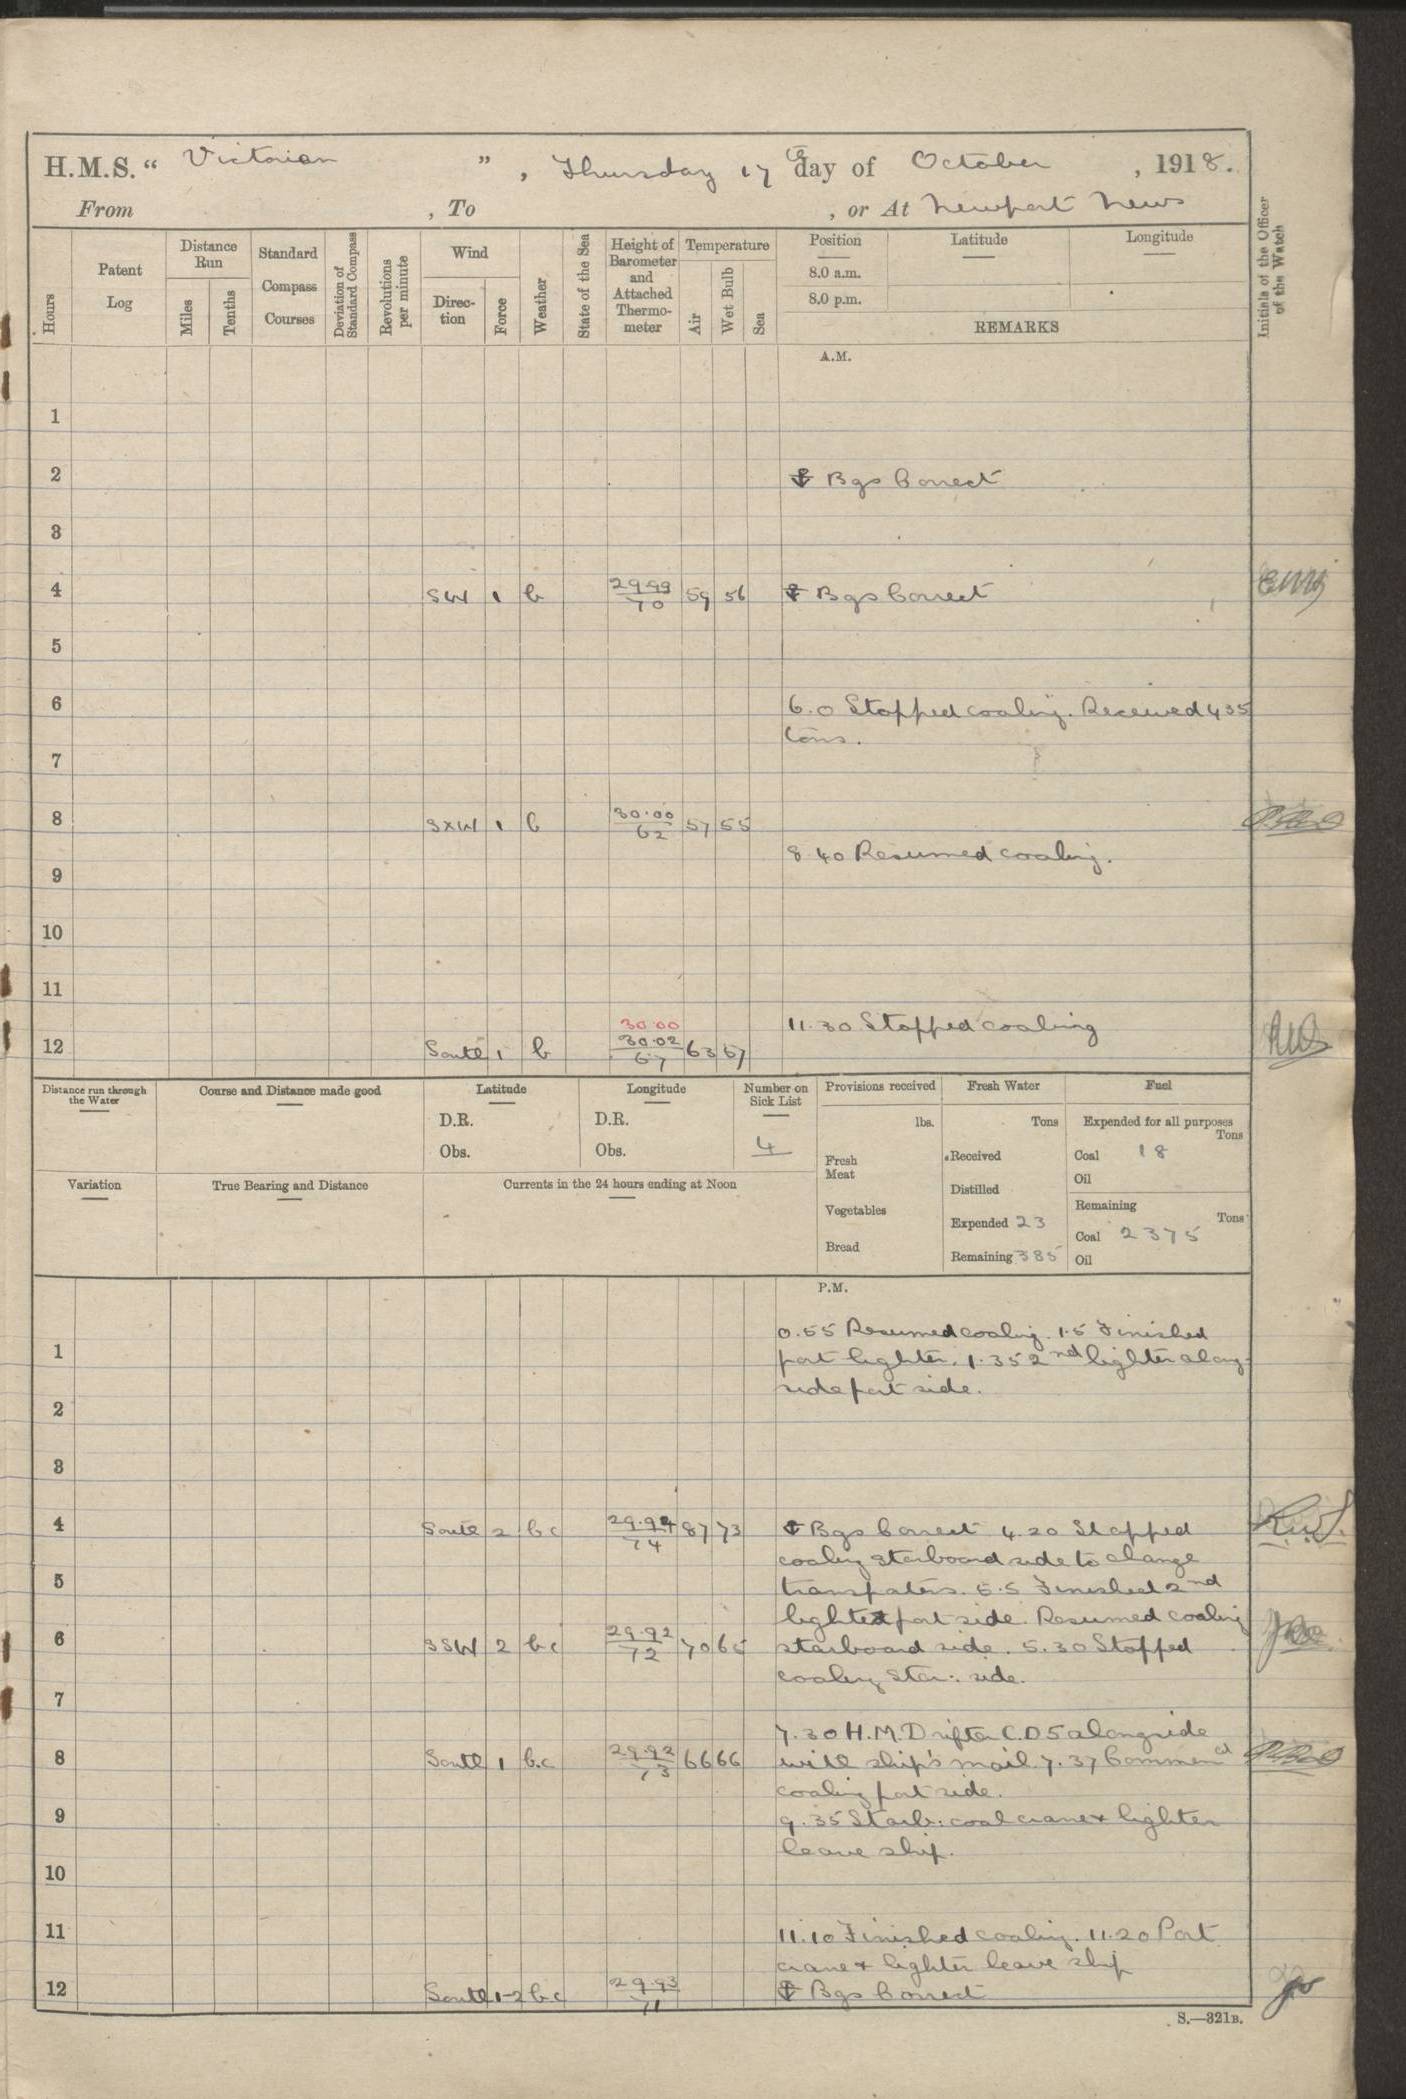 H.M.S. “ Victorian ” , Thursday 17th day of October , 1918.
From , To , or At Newport News
Hours
Patent Log
Distance Run
Miles
Tenths
Standard Compass Courses
Deviation of Standard Compass
Revolutions per minute
Wind
Direction
Force
Weather
State of the Sea
Height of Barometer and Attached Thermometer
Temperature
Air
Wet Bulb
Sea
Position
8.0 a.m.
8.0 p.m.
Latitude
Longitude
REMARKS
Initials of the Officer of the Watch
A.M.
1
2 ⚓ Bgs Correct
3
4 SW 1 b 29.99 70 59 56 ⚓ Bgs Correct
5
6 6.0 Stopped coaling. Received 435
tons.
7
8 SxW 1 b 30.00 62 57 55
8.40 Resumed coaling.
9
10
11
11.30 Stopped coaling
30.00
12 South 1 b 30.02 67 63 57
Distance run through the Water
Course and Distance made good
Latitude
D.R.
Obs.
Longitude
D.R.
Obs.
Number on Sick List
4
Provisions received
lbs.
Fresh Meat
Vegetables
Bread
Fresh Water
Tons
Received
Distilled
Expended 23
Remaining 385
Fuel
Expended for all purposes
Tons
Coal 18
Oil
Remaining
Tons
Coal 2375
Oil
Variation
True Bearing and Distance
Currents in the 24 hours ending at Noon
P.M.
0.55 Resumed coaling. 1.5 Finished
1 port lighter. 1.35 2nd lighter along-
side port side.
2
3
4 South 2 bc 29.94 74 87 73 ⚓ Bgs Correct 4.20 Stopped
coaling starboard side to change
5 5.5 Finished 2nd
lighter port side. Resumed coaling
6 SSW 2 bc 29.92 72 70 65 starboard side. 5.30 Stopped
coaling star: side.
7
7.30 H.M. Drifter C.D5 alongside
8 South 1 b.c 29.92 73 66 66 with ship's mail. 7.37 Commencd
coaling port side.
9 9.35 Starb: coal crane & lighter
leave ship.
10
11 11.10 Finished coaling. 11.20 Port
crane & lighter leave ship
12 South 1-2 bc 29.93 71 ⚓ Bgs Correct
S.—321B.